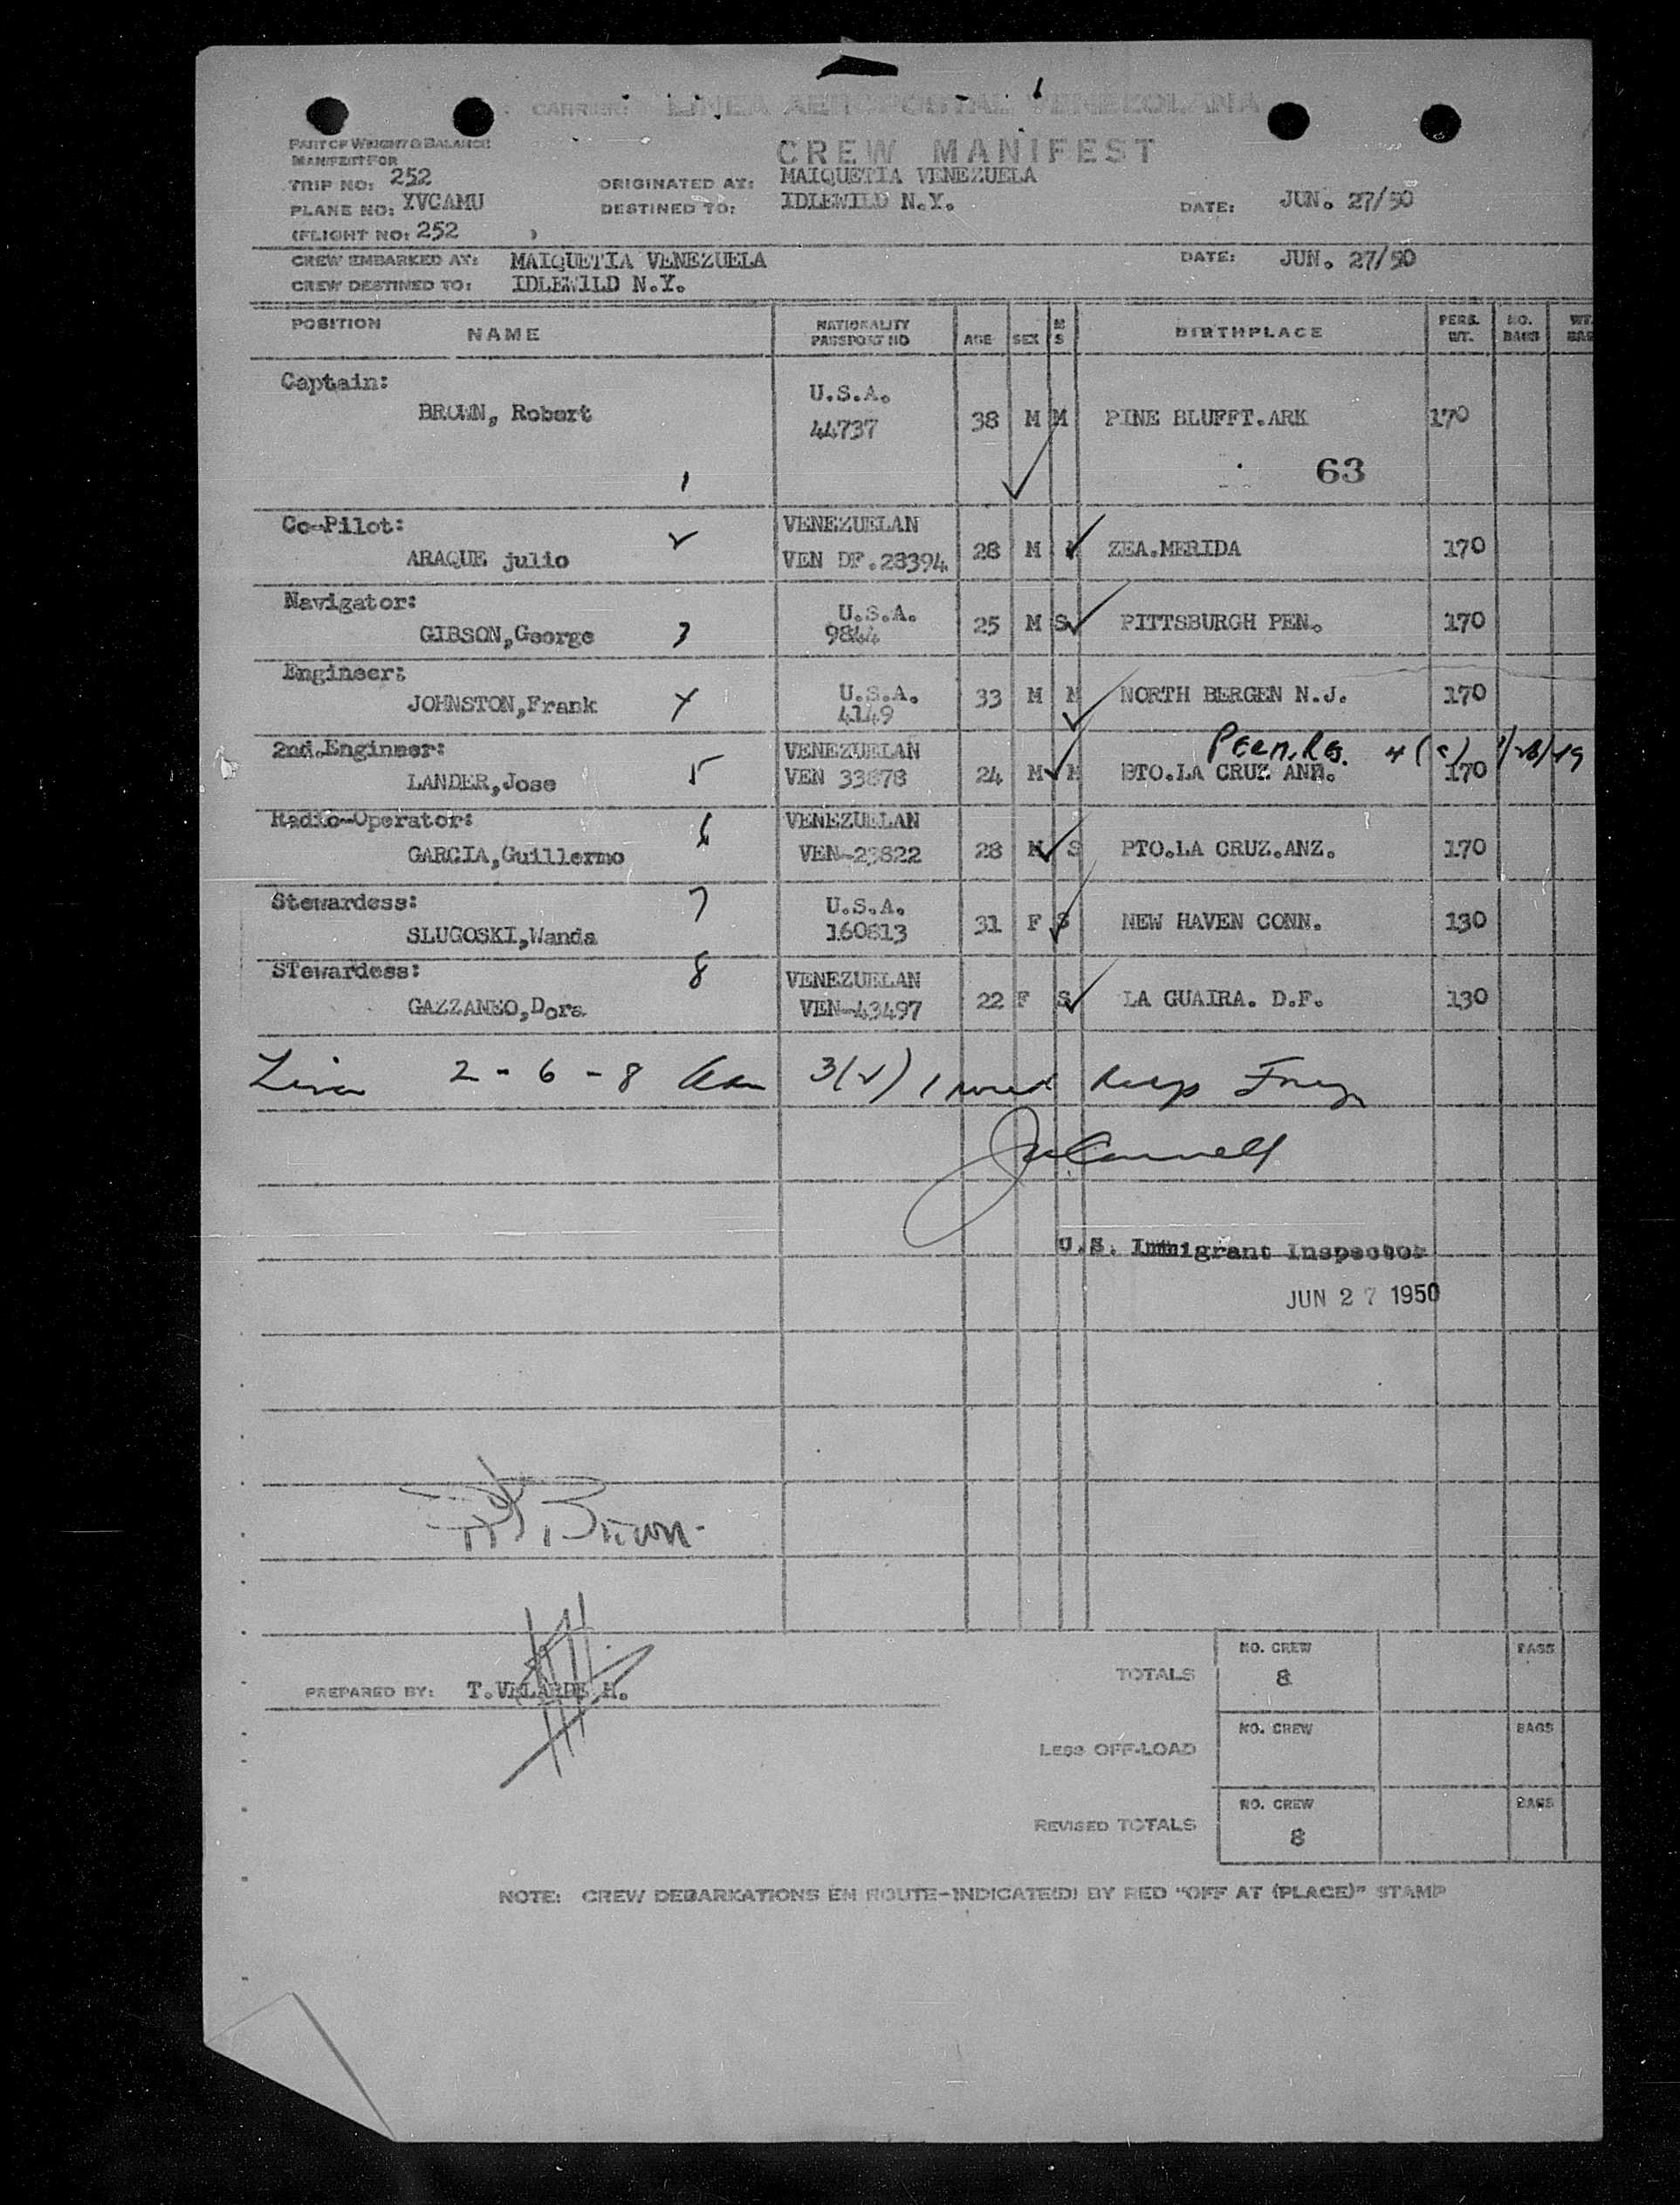 CARRIER: LINEA AEROPOSTAL VENEZOLANA
PART OF WEIGHT & BALANCE
MANIFEST FOR
CREW MANIFEST
TRIP NO: 252 ORIGINATED AT: MAIQUETIA VENEZUELA
PLANE NO: YVCAMU DESTINED TO: IDLEWILD N.Y. DATE: JUN. 27/50
(FLIGHT NO: 252 )
CREW EMBARKED AT: MAIQUETIA VENEZUELA DATE: JUN. 27/50
CREW DESTINED TO: IDLEWILD N.Y.
POSITION NAME NATIONALITY PASSPORT NO AGE SEX M S BIRTHPLACE PERS. WT. NO. BAGS WT. BAG
Captain: U.S.A.
BROWN, Robert 44737 38 M M PINE BLUFFT.ARK 170
1 63
Co-Pilot: VENEZUELAN
ARAQUE julio 2 VEN DF.28394 28 M ZEA.MERIDA 170
Navigator: U.S.A.
GIBSON,George 3 9844 25 M S PITTSBURGH PEN. 170
Engineer: U.S.A.
JOHNSTON,Frank 4 4149 33 M M NORTH BERGEN N.J. 170
2nd.Engineer: VENEZUELAN Perm.Res.
LANDER,Jose 5 VEN 33878 24 M M PTO.LA CRUZ ANZ. 170
Radio-Operator: VENEZUELAN
GARCIA,Guillermo 6 VEN-23822 28 M S PTO.LA CRUZ.ANZ. 170
Stewardess: U.S.A.
SLUGOSKI,Wanda 7 160813 31 F S NEW HAVEN CONN. 130
STewardess: VENEZUELAN
GAZZANEO,Dora 8 VEN-43497 22 F S LA GUAIRA. D.F. 130
2 - 6 - 8
U.S. Immigrant Inspector
JUN 27 1950
Brown
PREPARED BY: T.VELARDE H.
TOTALS NO. CREW 8 BAGS
LESS OFF-LOAD NO. CREW BAGS
REVISED TOTALS NO. CREW 8 BAGS
NOTE: CREW DEBARKATIONS EN ROUTE-INDICATE(D) BY RED "OFF AT (PLACE)" STAMP